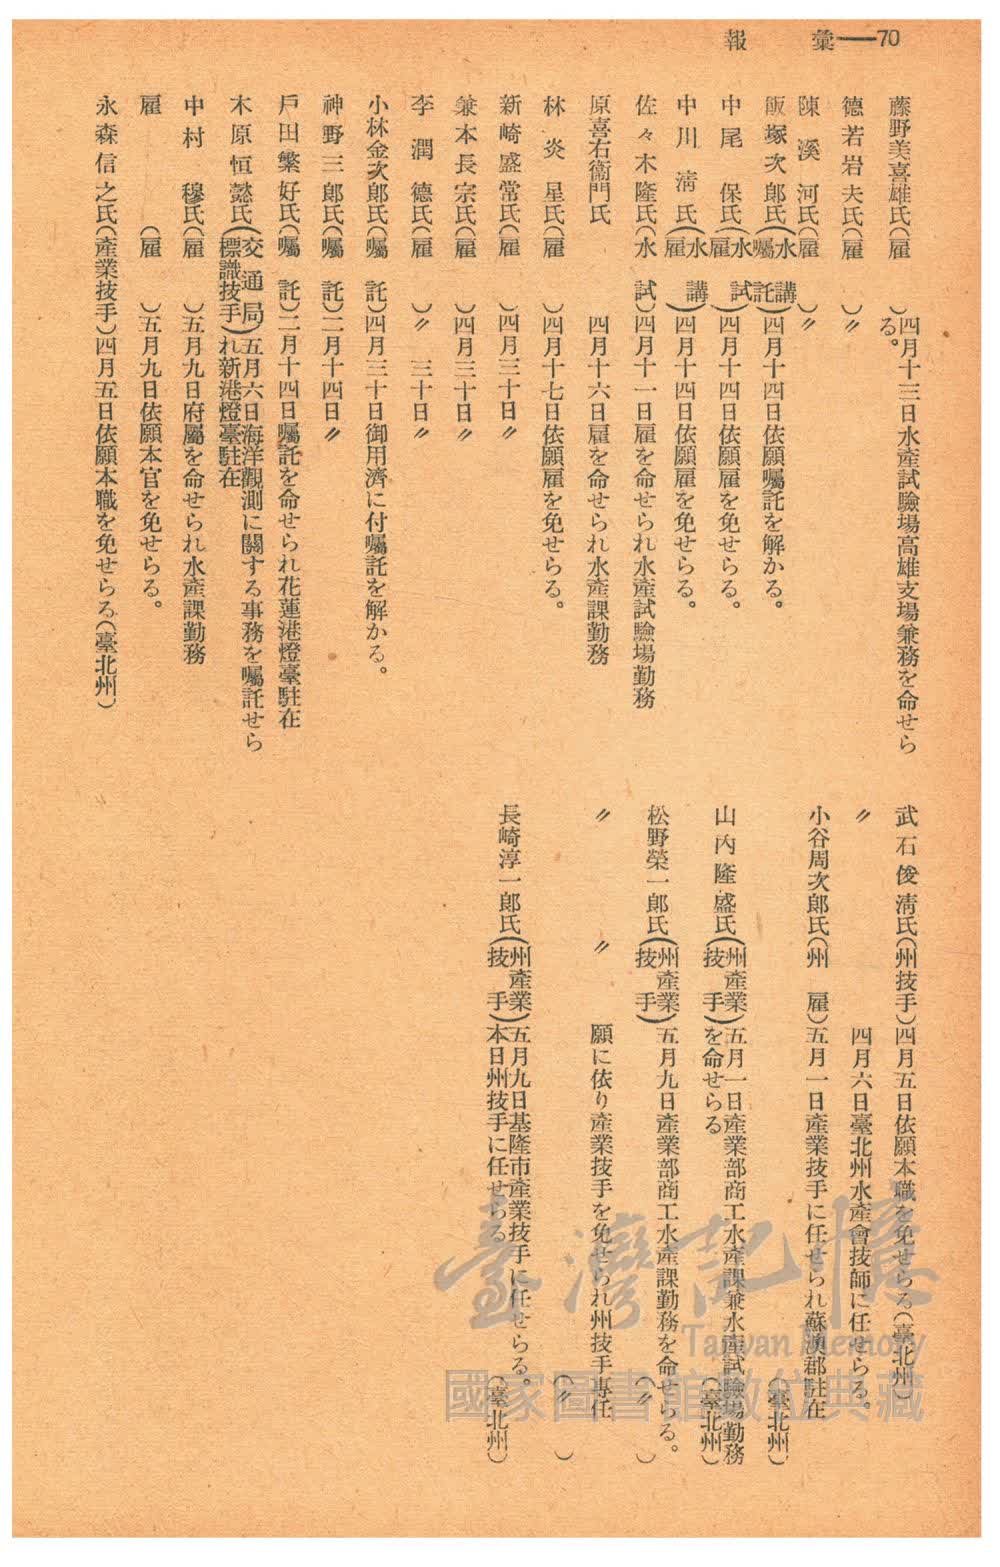 彙報——70
藤野美喜雄氏(雇)四月十三日水產試驗場高雄支場兼務を命せら
る。
德若岩夫氏(雇)〃
陳溪河氏(雇)〃
飯塚次郎氏(水講囑託)四月十四日依願囑託を解かる。
中尾保氏(水試雇)四月十四日依願雇を免せらる。
中川淸氏(水講雇)四月十四日依願雇を免せらる。
佐々木隆氏(水試)四月十一日雇を命せられ水產試驗場勤務
原喜右衞門氏 四月十六日雇を命せられ水產課勤務
林炎星氏(雇)四月十七日依願雇を免せらる。
新崎盛常氏(雇)四月三十日〃
兼本長宗氏(雇)四月三十日〃
李潤德氏(雇)〃三十日〃
小林金次郎氏(囑託)四月三十日御用濟に付囑託を解かる。
神野三郎氏(囑託)二月十四日〃
戶田繁好氏(囑託)二月十四日囑託を命せられ花蓮港燈臺駐在
木原恒懿氏(交通局標識技手)五月六日海洋觀測に關する事務を囑託せら
れ新港燈臺駐在
中村穆氏(雇)五月九日府屬を命せられ水產課勤務
雇(雇)五月九日依願本官を免せらる。
永森信之氏(產業技手)四月五日依願本職を免せらる(臺北州)
武石俊淸氏(州技手)四月五日依願本職を免せらる(臺北州)
〃 四月六日臺北州水產會技師に任せらる。
小谷周次郎氏(州雇)五月一日產業技手に任せられ蘇澳郡駐在
(臺北州)
山內隆盛氏(州產業技手)五月一日產業部商工水產課兼水產試驗場勤務
を命せらる(臺北州)
松野榮一郎氏(州產業技手)五月九日產業部商工水產課勤務を命せらる。
(〃)
〃 〃 願に依り產業技手を免せられ州技手專任
(〃)
長崎淳一郎氏(州產業技手)五月九日基隆市產業技手に任せらる。
本日州技手に任せらる(臺北州)
臺灣記憶
Taiwan Memory
國家圖書館數位典藏